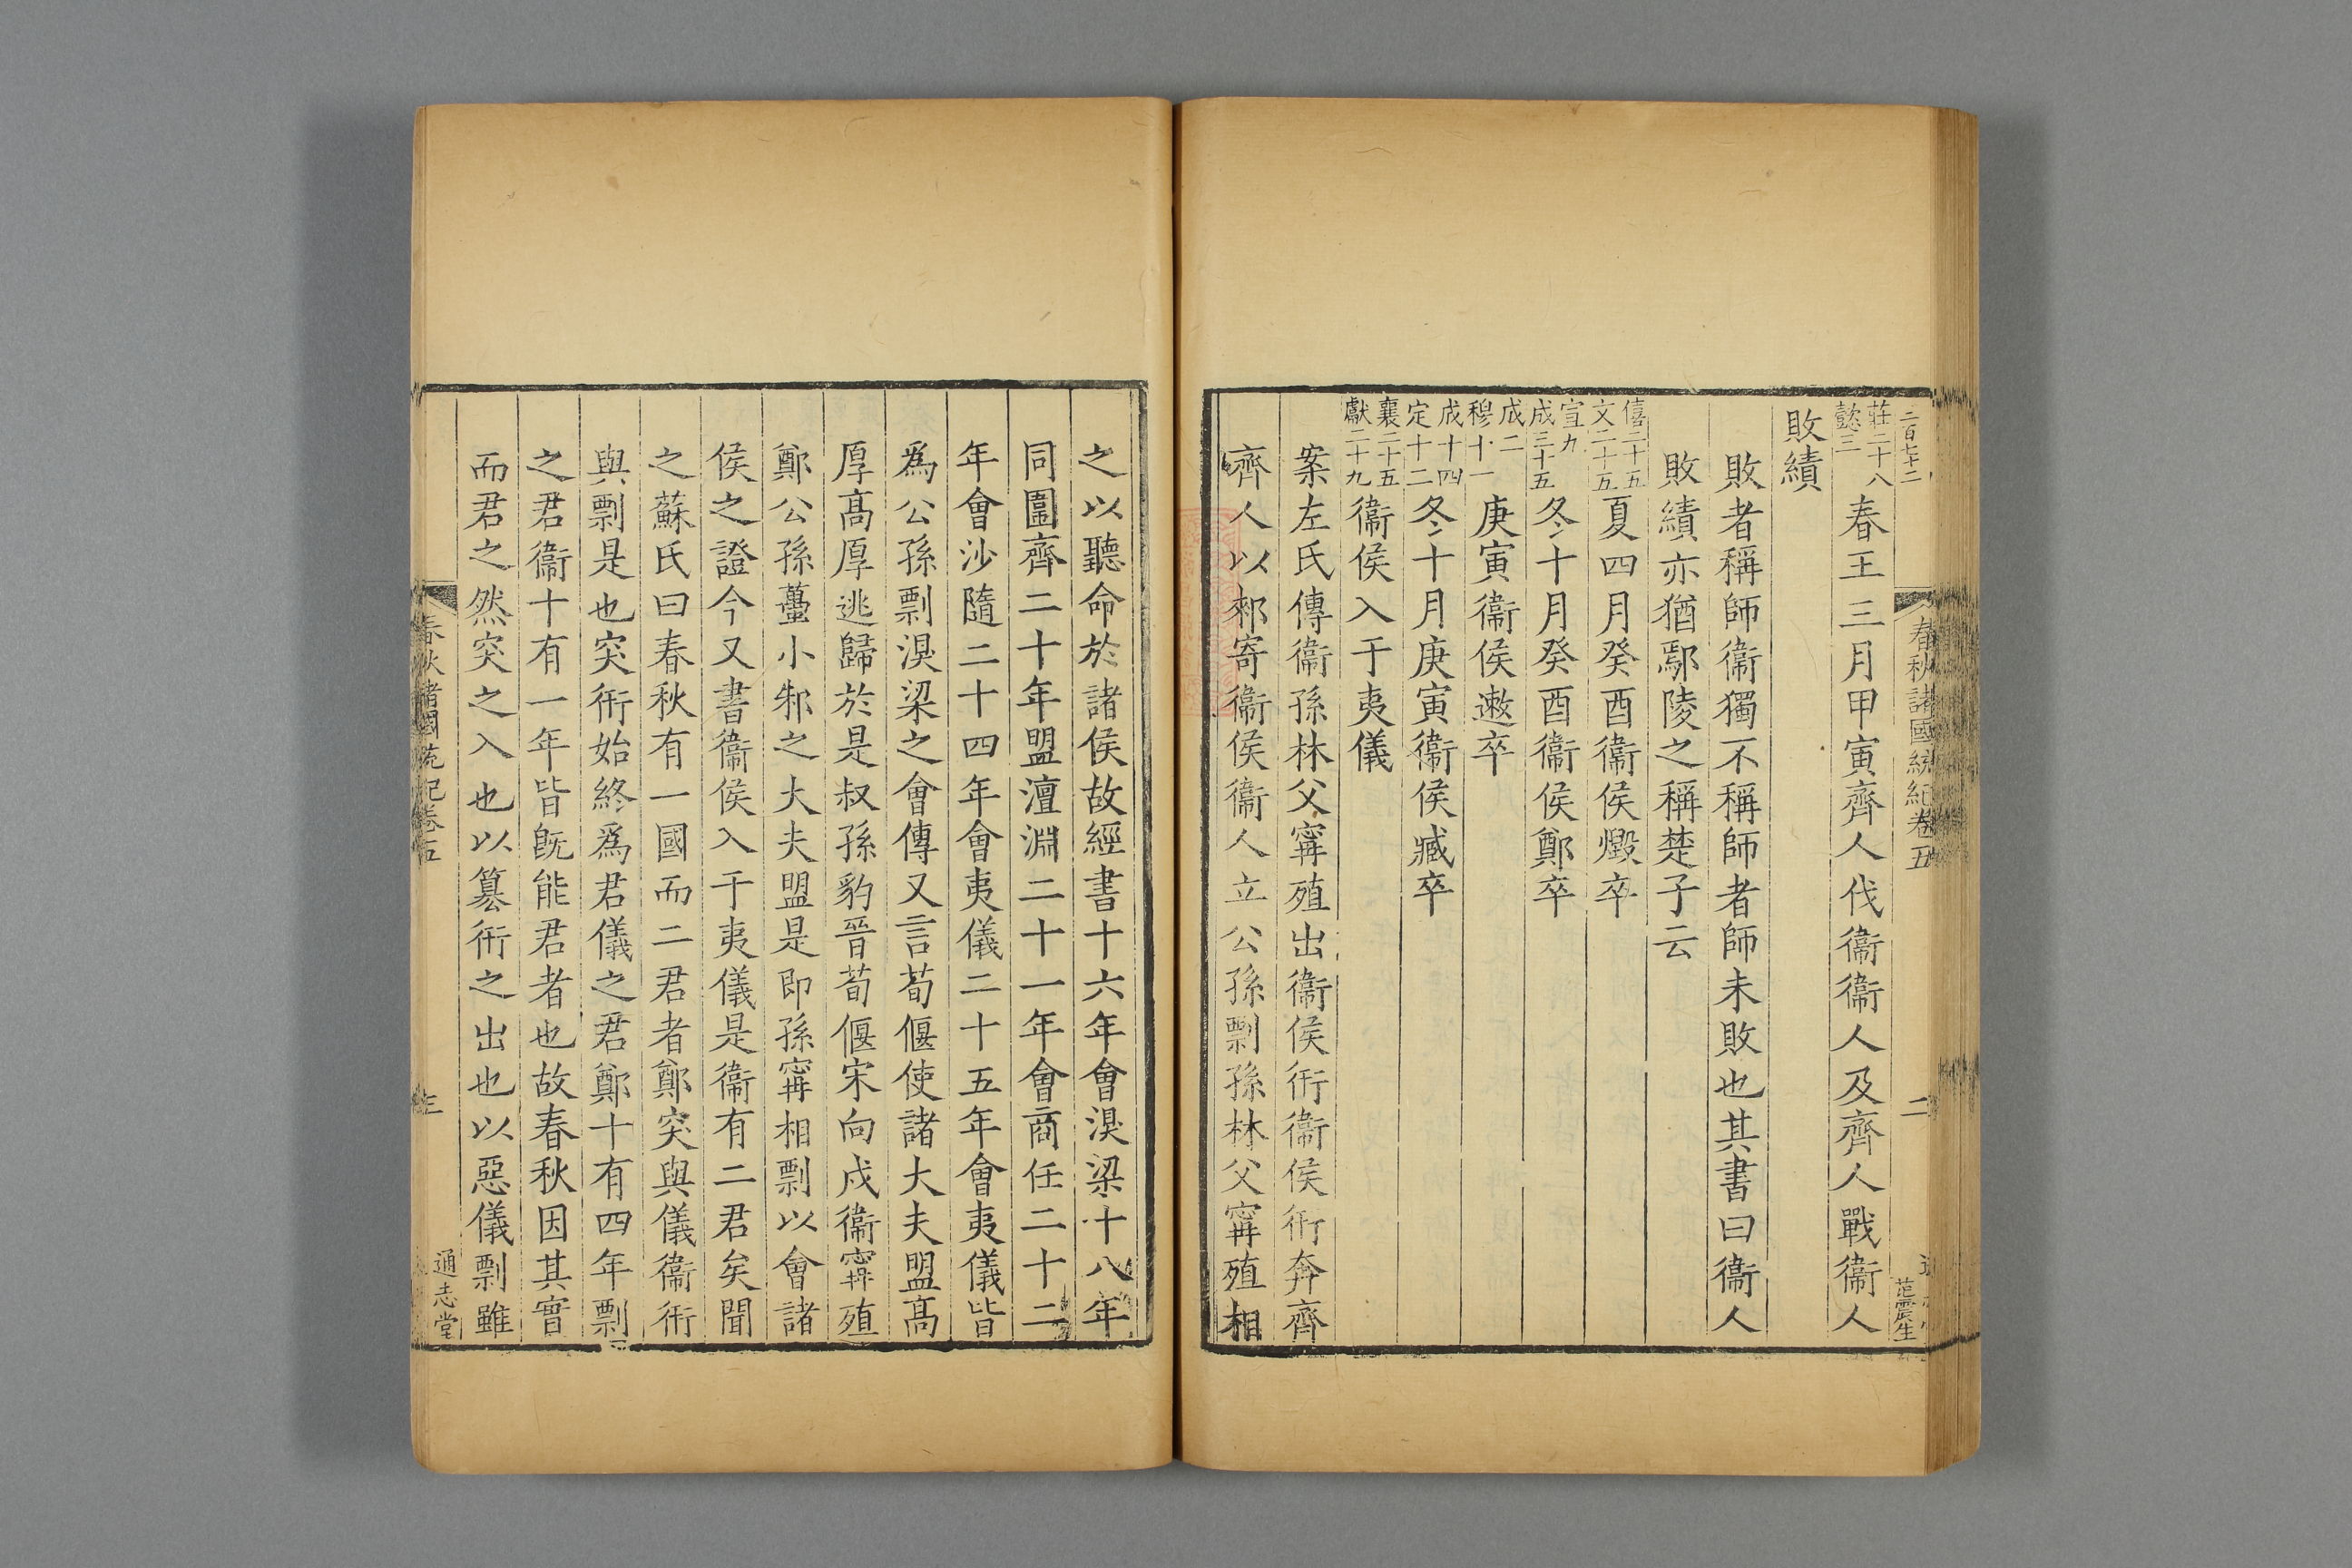 二百七十二
春秋諸國統紀卷五
二
范震生
莊二十八
懿三
春王三月甲寅齊人伐衞衞人及齊人戰衞人
敗績
敗者稱師衞獨不稱師者師未敗也其書曰衞人
敗績亦猶鄢陵之稱楚子云
僖二十五
文二十五
夏四月癸酉衞侯燬卒
宣九
成三十五
冬十月癸酉衞侯鄭卒
成二
穆十一
庚寅衞侯遬卒
成十四
定十二
冬十月庚寅衞侯臧卒
襄二十五
獻二十九
衞侯入于夷儀
案左氏傳衞孫林父甯殖出衞侯衎衞侯衎奔齊
齊人以郲寄衞侯衞人立公孫剽孫林父甯殖相
之以聽命於諸侯故經書十六年會湨梁十八年
同圍齊二十年盟澶淵二十一年會商任二十二
年會沙隨二十四年會夷儀二十五年會夷儀皆
爲公孫剽湨梁之會傳又言荀偃使諸大夫盟高
厚高厚逃歸於是叔孫豹晉荀偃宋向戌衞甯殖
鄭公孫蠆小邾之大夫盟是即孫甯相剽以會諸
侯之證今又書衞侯入于夷儀是衞有二君矣聞
之蘇氏曰春秋有一國而二君者鄭突與儀衞衎
與剽是也突衎始終爲君儀之君鄭十有四年剽
之君衞十有一年皆旣能君者也故春秋因其實
而君之然突之入也以篡衎之出也以惡儀剽雖
春秋諸國統紀卷五
通志堂